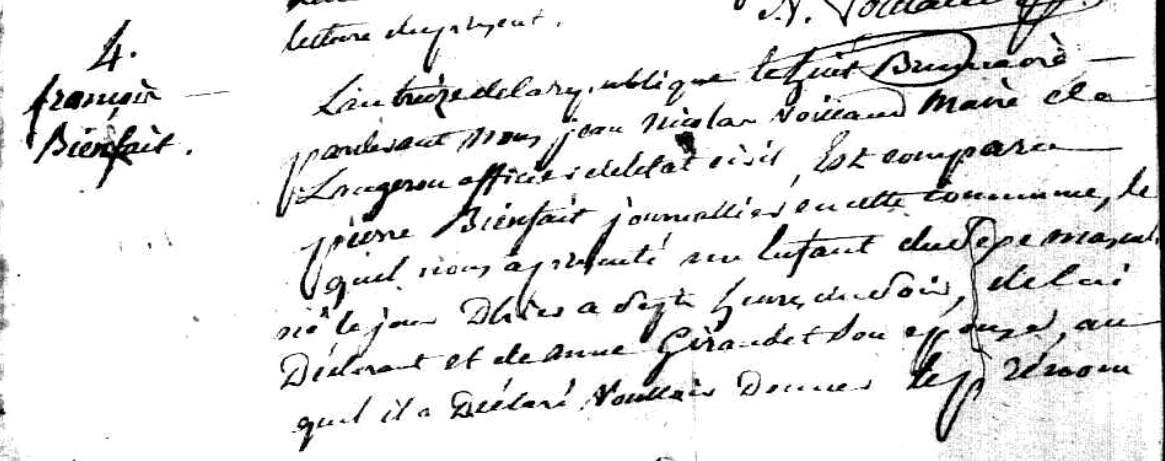 lecture du présent.
4.
françois
Bienfait.
L'an treize de la république le huit Brumaire
pardevant nous jean nicolas Voillaud Maire de la
Langeron officier de l'état civil, Est comparu
pierre Bienfait journallier en cette commune, le
quel nous a présenté un Enfant du Sexe mascul.
né le jour D'hier a Sept heures du Soir, de lui
Déclarant et de anne Giraudet Son epouse, au
quel il a Déclaré Voulloir Donner le prénom